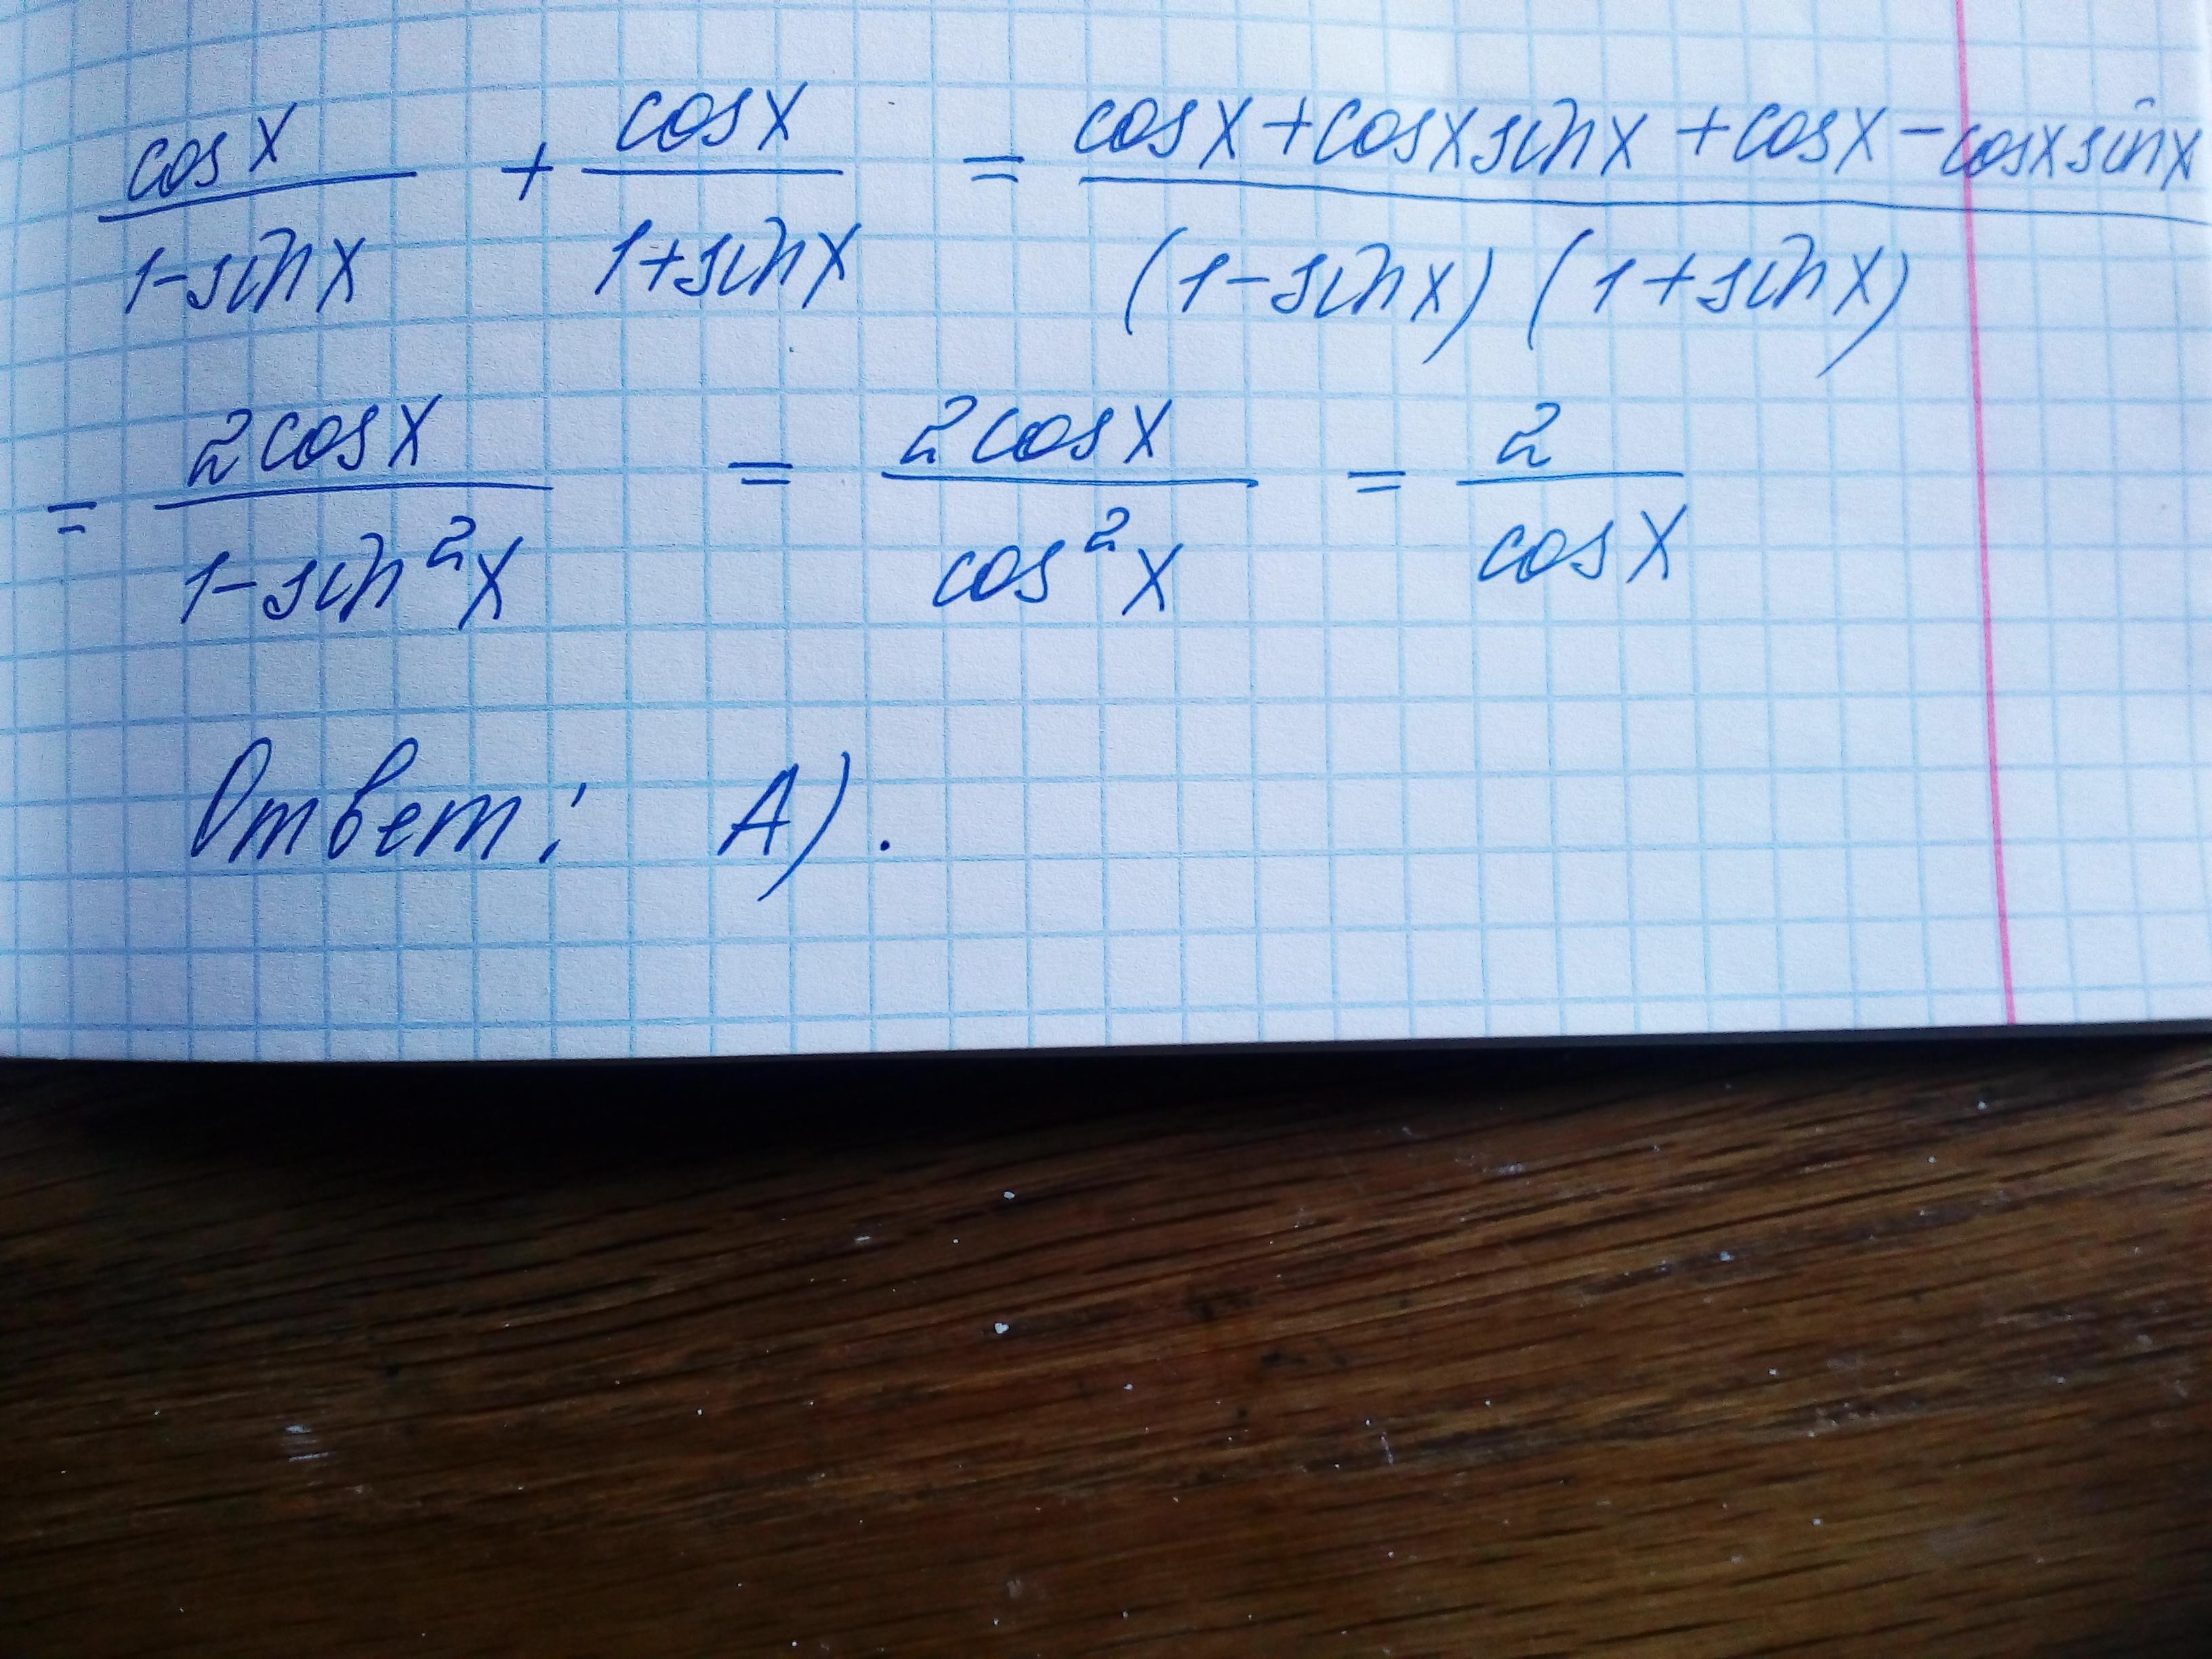 cosx/(1-sinx) + cosx/(1+sinx) = (cosx+cosxsinx+cosx-cosxsinx)/((1-sinx)(1+sinx))
= 2cosx/(1-sin²x) = 2cosx/cos²x = 2/cosx
Ответ: А).